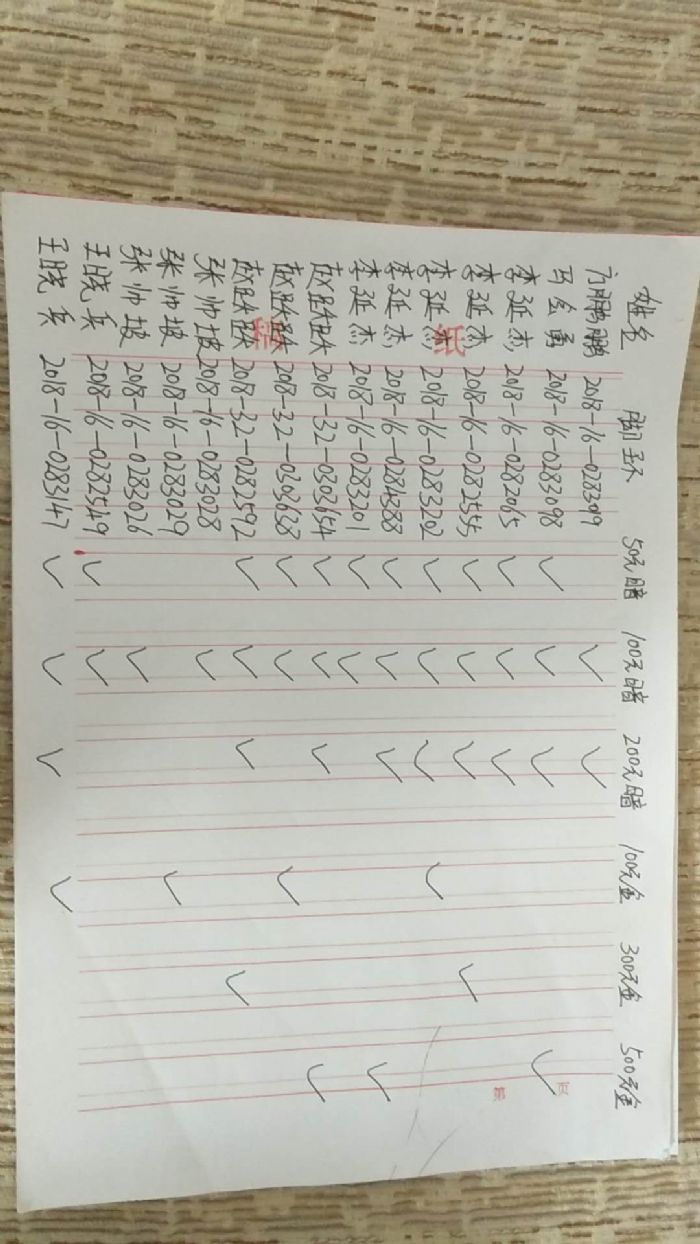 姓名 脚环 50元暗 100元暗 200元暗 100元金 300元金 500元金
方鹏鹏 2018-16-028309 ✓ ✓
马会勇 2018-16-0283098 ✓ ✓ ✓ ✓
李延杰 2018-16-0282065 ✓ ✓ ✓
李延杰 2018-16-0282555 ✓ ✓ ✓ ✓
李延杰 2018-16-0283202 ✓ ✓ ✓ ✓
李延杰 2018-16-0284388 ✓ ✓ ✓ ✓
李延杰 2018-16-0283201 ✓ ✓
赵跃跃 2018-32-0303654 ✓ ✓ ✓ ✓
赵跃跃 2018-32-0303638 ✓ ✓ ✓
赵跃跃 2018-32-0282592 ✓ ✓ ✓ ✓
张帅坡 2018-16-0283028 ✓
张帅坡 2018-16-0283029 ✓
张帅坡 2018-16-0283026 ✓
王晓兵 2018-16-0282549 ✓ ✓
王晓兵 2018-16-0283147 ✓ ✓ ✓ ✓
第 页